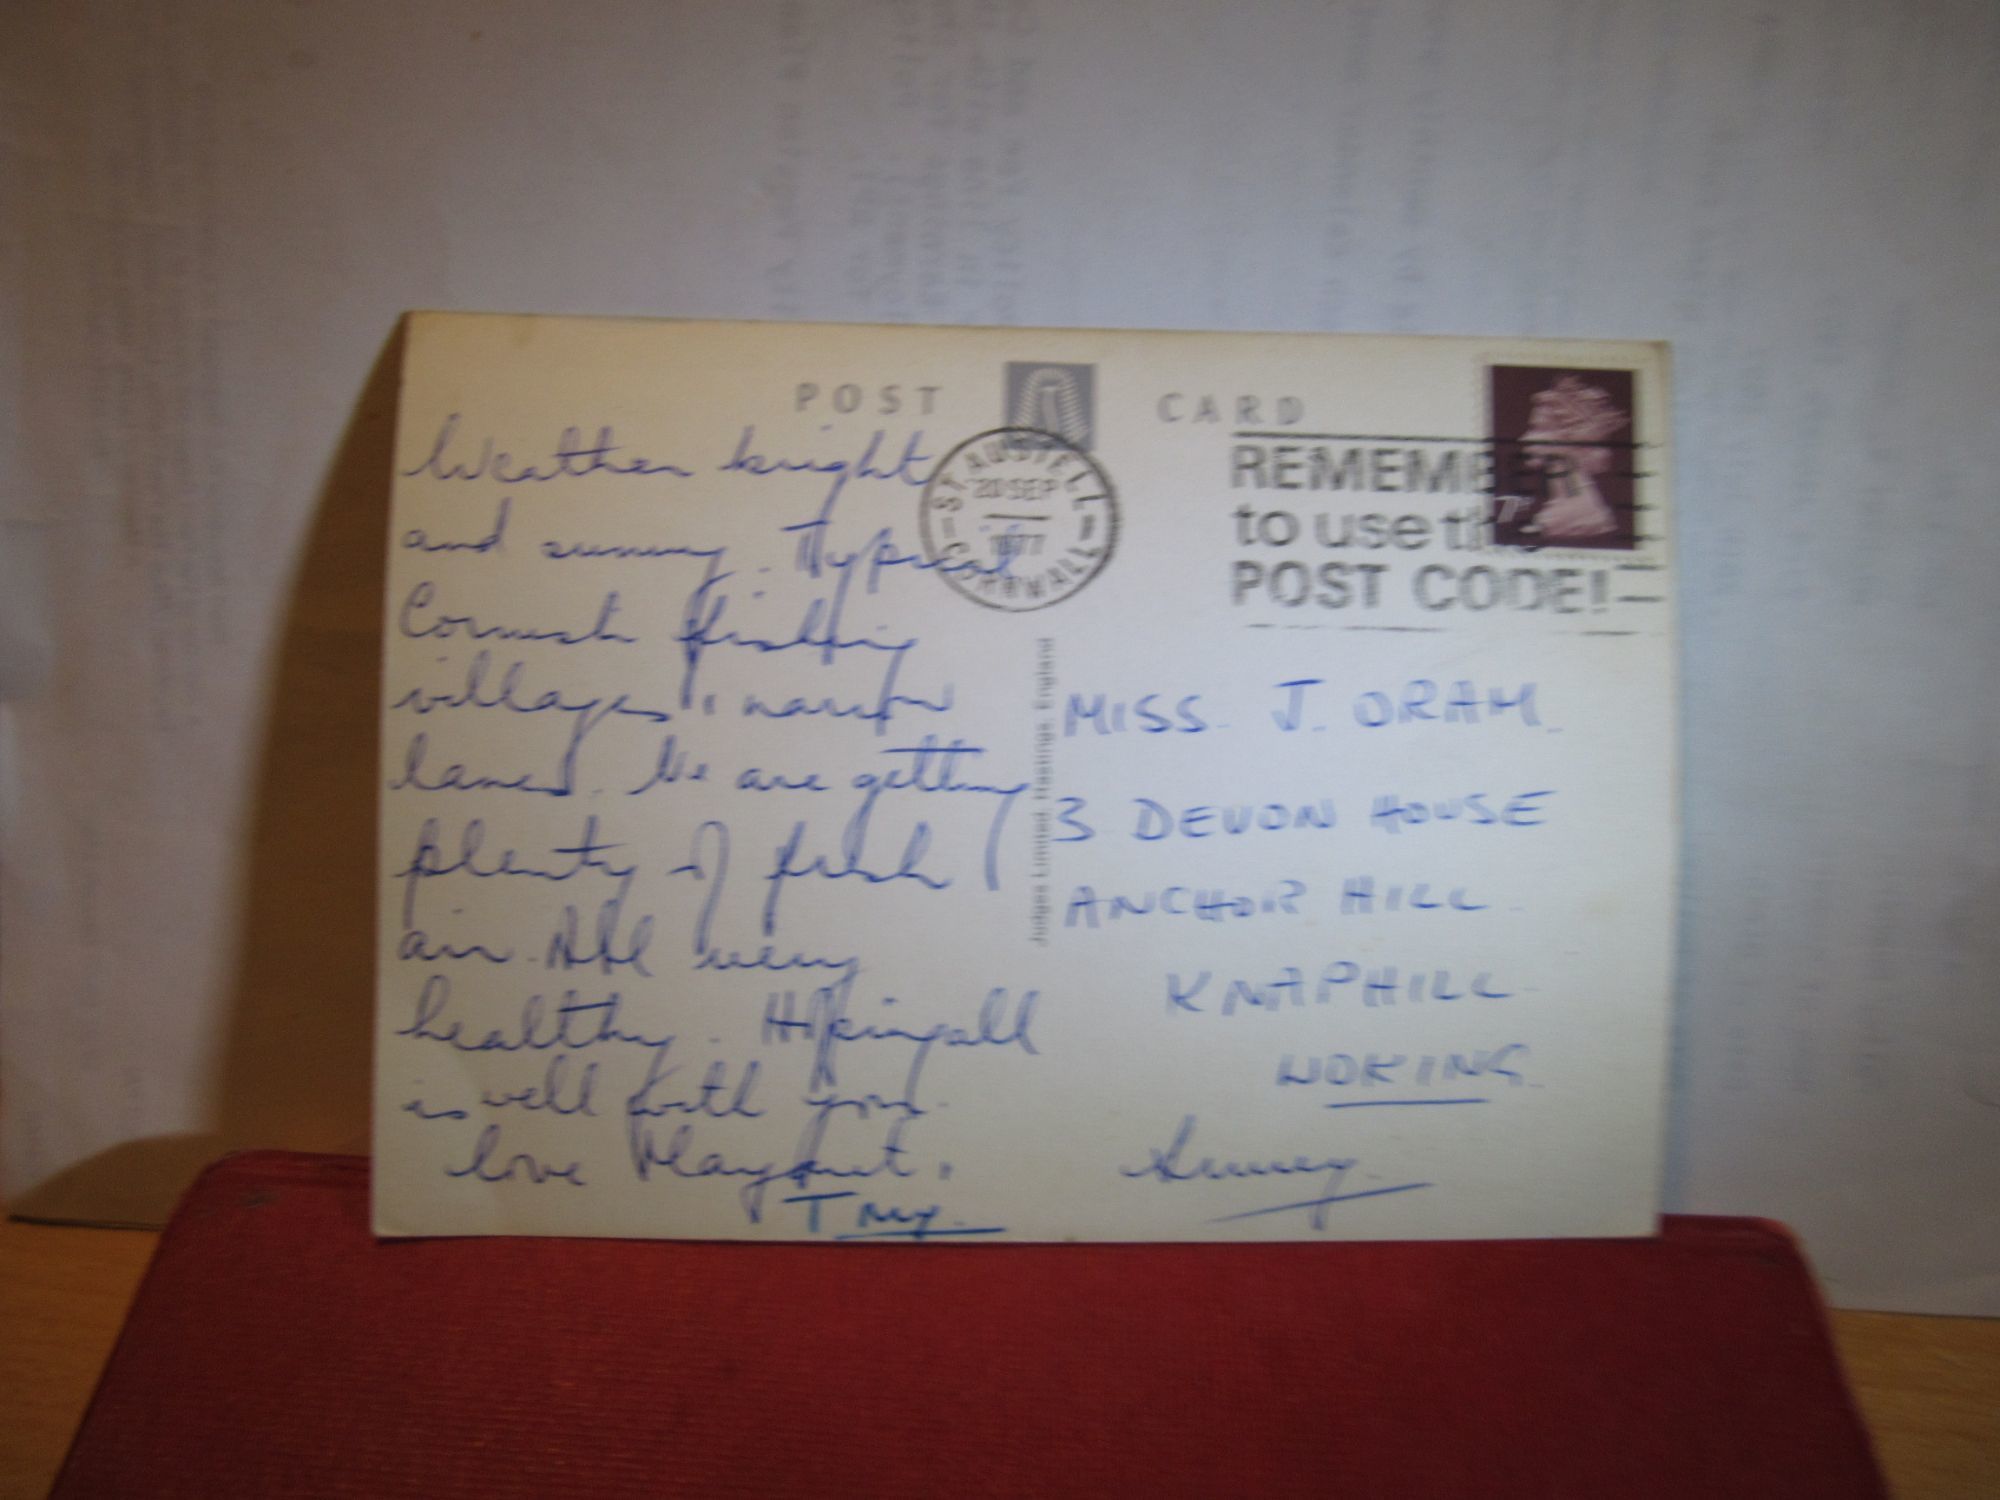 POST CARD
Weather bright
and sunny. Typical
Cornish fishing
villages & narrow
lanes. We are getting
plenty of fresh
air. All very
healthy. Hoping all
is well with you.
love Margaret.
Tony.
ST. AUSTELL
20 SEP
1977
CORNWALL
REMEMBER
to use the
POST CODE!
7P
Judges Limited, Hastings, England
MISS. J. ORAM.
3 DEVON HOUSE
ANCHOR HILL
KNAPHILL
WOKING.
Surrey.